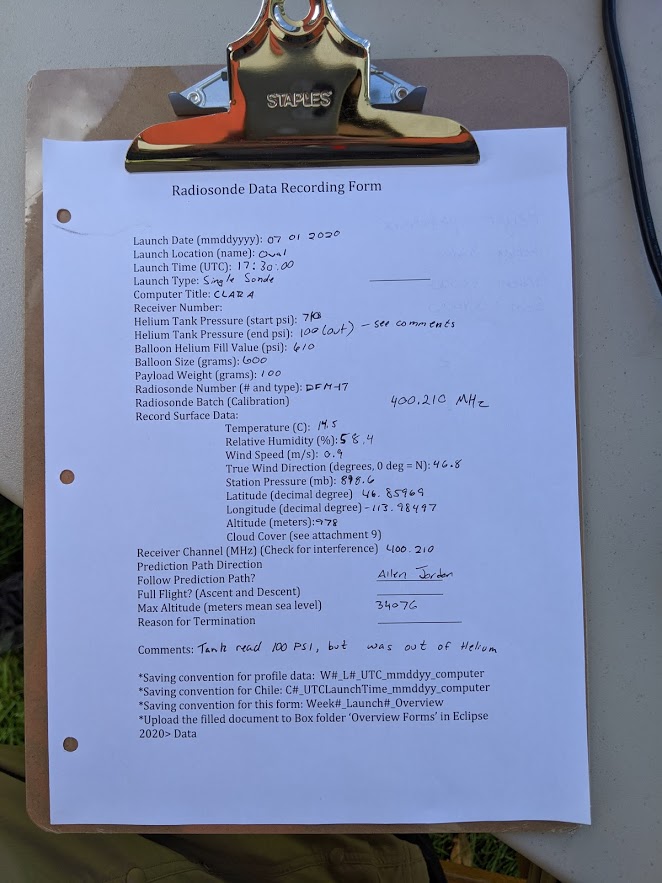 STAPLES
Radiosonde Data Recording Form
Launch Date (mmddyyyy): 07 01 2020
Launch Location (name): Oval
Launch Time (UTC): 17:30:00
Launch Type: Single Sonde
Computer Title: CLARA
Receiver Number:
Helium Tank Pressure (start psi):
Helium Tank Pressure (end psi): 100 (out) – see comments
Balloon Helium Fill Value (psi): 610
Balloon Size (grams): 600
Payload Weight (grams): 100
Radiosonde Number (# and type): DFM-17
Radiosonde Batch (Calibration) 400.210 MHz
Record Surface Data:
Temperature (C): 14.5
Relative Humidity (%): 58.4
Wind Speed (m/s): 0.9
True Wind Direction (degrees, 0 deg = N): 46.8
Station Pressure (mb):
Latitude (decimal degree) 46.85969
Longitude (decimal degree) -113.98497
Altitude (meters): 978
Cloud Cover (see attachment 9)
Receiver Channel (MHz) (Check for interference) 400.210
Prediction Path Direction
Follow Prediction Path? Allen Jordan
Full Flight? (Ascent and Descent)
Max Altitude (meters mean sea level) 34076
Reason for Termination
Comments: Tank read 100 PSI, but was out of Helium
*Saving convention for profile data: W#_L#_UTC_mmddyy_computer
*Saving convention for Chile: C#_UTCLaunchTime_mmddyy_computer
*Saving convention for this form: Week#_Launch#_Overview
*Upload the filled document to Box folder 'Overview Forms' in Eclipse
2020> Data